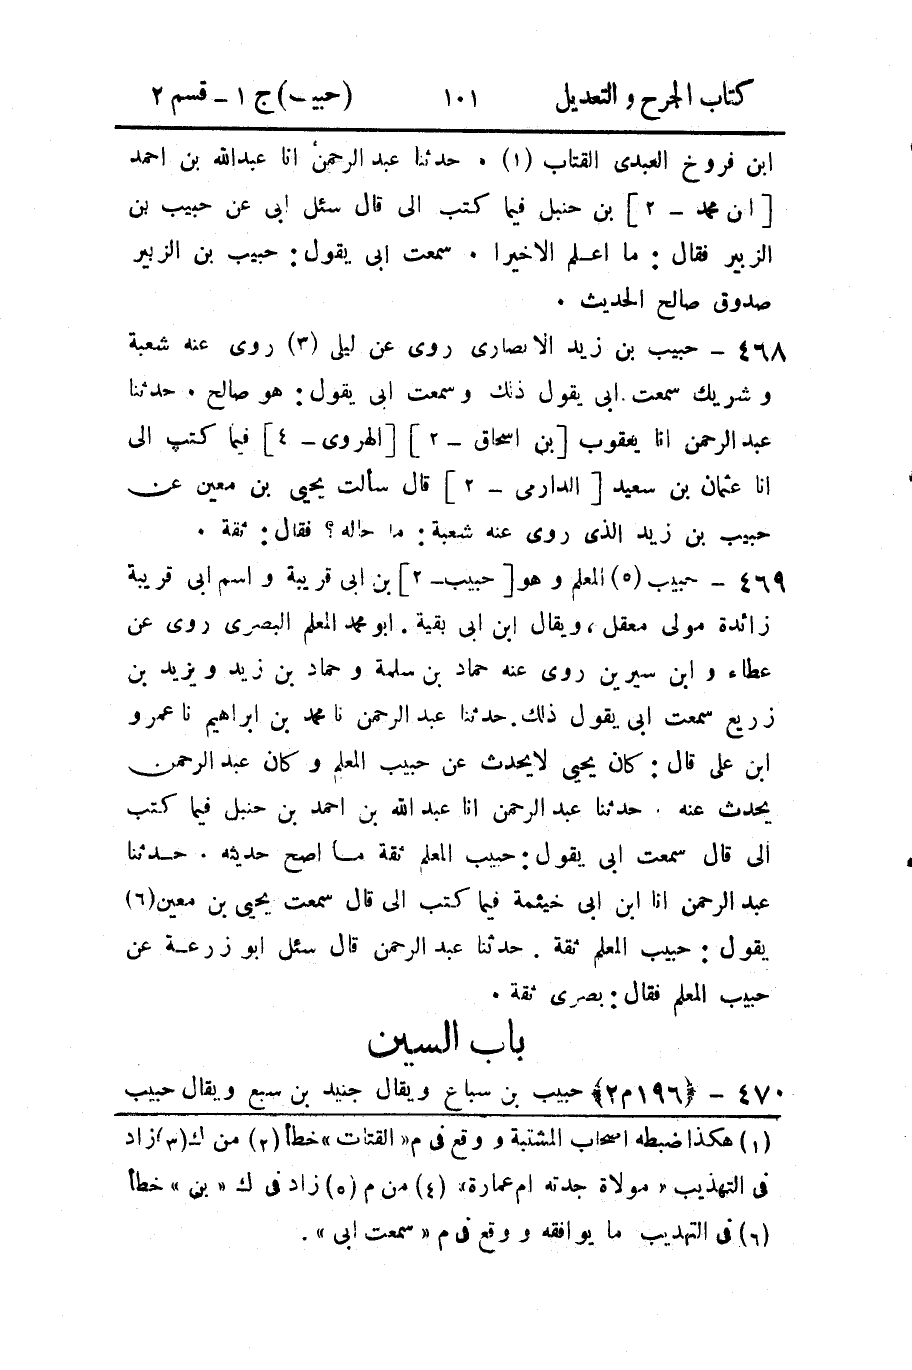 كتاب الجرح و التعديل ١٠١ (حبيب) ج ١ - قسم ٢
ابن فروخ العبدى القتاب (١) . حدثنا عبد الرحمن أنا عبدالله بن احمد
[ ان محمد - ٢ ] بن حنبل فيما كتب الى قال سئل ابى عن حبيب بن
الزبير فقال : ما اعلم الاخيرا . سمعت ابى يقول : حبيب بن الزبير
صدوق صالح الحديث .
٤٦٨ - حبيب بن زيد الانصارى روى عن ليلى (٣) روى عنه شعبة
و شريك سمعت ابى يقول ذلك و سمعت ابى يقول : هو صالح . حدثنا
عبد الرحمن انا يعقوب [ بن اسحاق - ٢ ] [ الهروى - ٤ ] فيما كتب الى
انا عثمان بن سعيد [ الدارمى - ٢ ] قال سألت يحيى بن معين عن
حبيب بن زيد الذى روى عنه شعبة : ما حاله ؟ فقال : ثقة .
٤٦٩ - حبيب (٥) المعلم و هو [ حبيب - ٢ ] بن ابى قريبة و اسم ابى قريبة
زائدة مولى معقل ، ويقال ابن ابى بقية . ابو محمد المعلم البصرى روى عن
عطاء و ابن سيرين روى عنه حماد بن سلمة و حماد بن زيد و يزيد بن
زريع سمعت ابى يقول ذلك . حدثنا عبد الرحمن نا محمد بن ابراهيم نا عمرو
ابن على قال : كان يحيى لايحدث عن حبيب المعلم و كان عبد الرحمن
يحدث عنه . حدثنا عبد الرحمن انا عبد الله بن احمد بن حنبل فيما كتب
الى قال سمعت ابى يقول : حبيب المعلم ثقة ما اصح حديثه . حدثنا
عبد الرحمن انا ابن ابى خيثمة فيما كتب الى قال سمعت يحيى بن معين (٦)
يقول : حبيب المعلم ثقة . حدثنا عبد الرحمن قال سئل ابو زرعة عن
حبيب المعلم فقال : بصرى ثقة .
باب السين
٤٧٠ - ﴿١٩٦م٢﴾ حبيب بن سباع ويقال جنيد بن سبع ويقال حبيب
(١) هكذا ضبطه اصحاب المشتبة و وقع فى م « القتات » خطأ (٢) من ك (٣) زاد
فى التهذيب « مولاة جدته ام عمارة » (٤) من م (٥) زاد فى ك « بن » خطأ
(٦) فى التهذيب ما يوافقه و وقع فى م « سمعت ابى » .